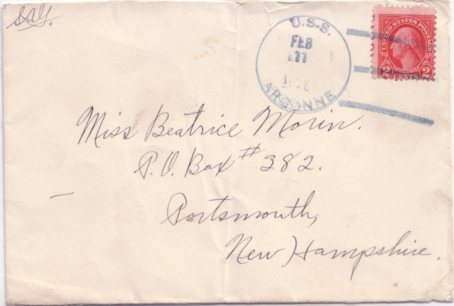 U.S.S.
FEB
ARGONNE
UNITED STATES POSTAGE
2 2
Miss Beatrice Morin.
P.O. Box # 282.
Portsmouth,
New Hampshire.